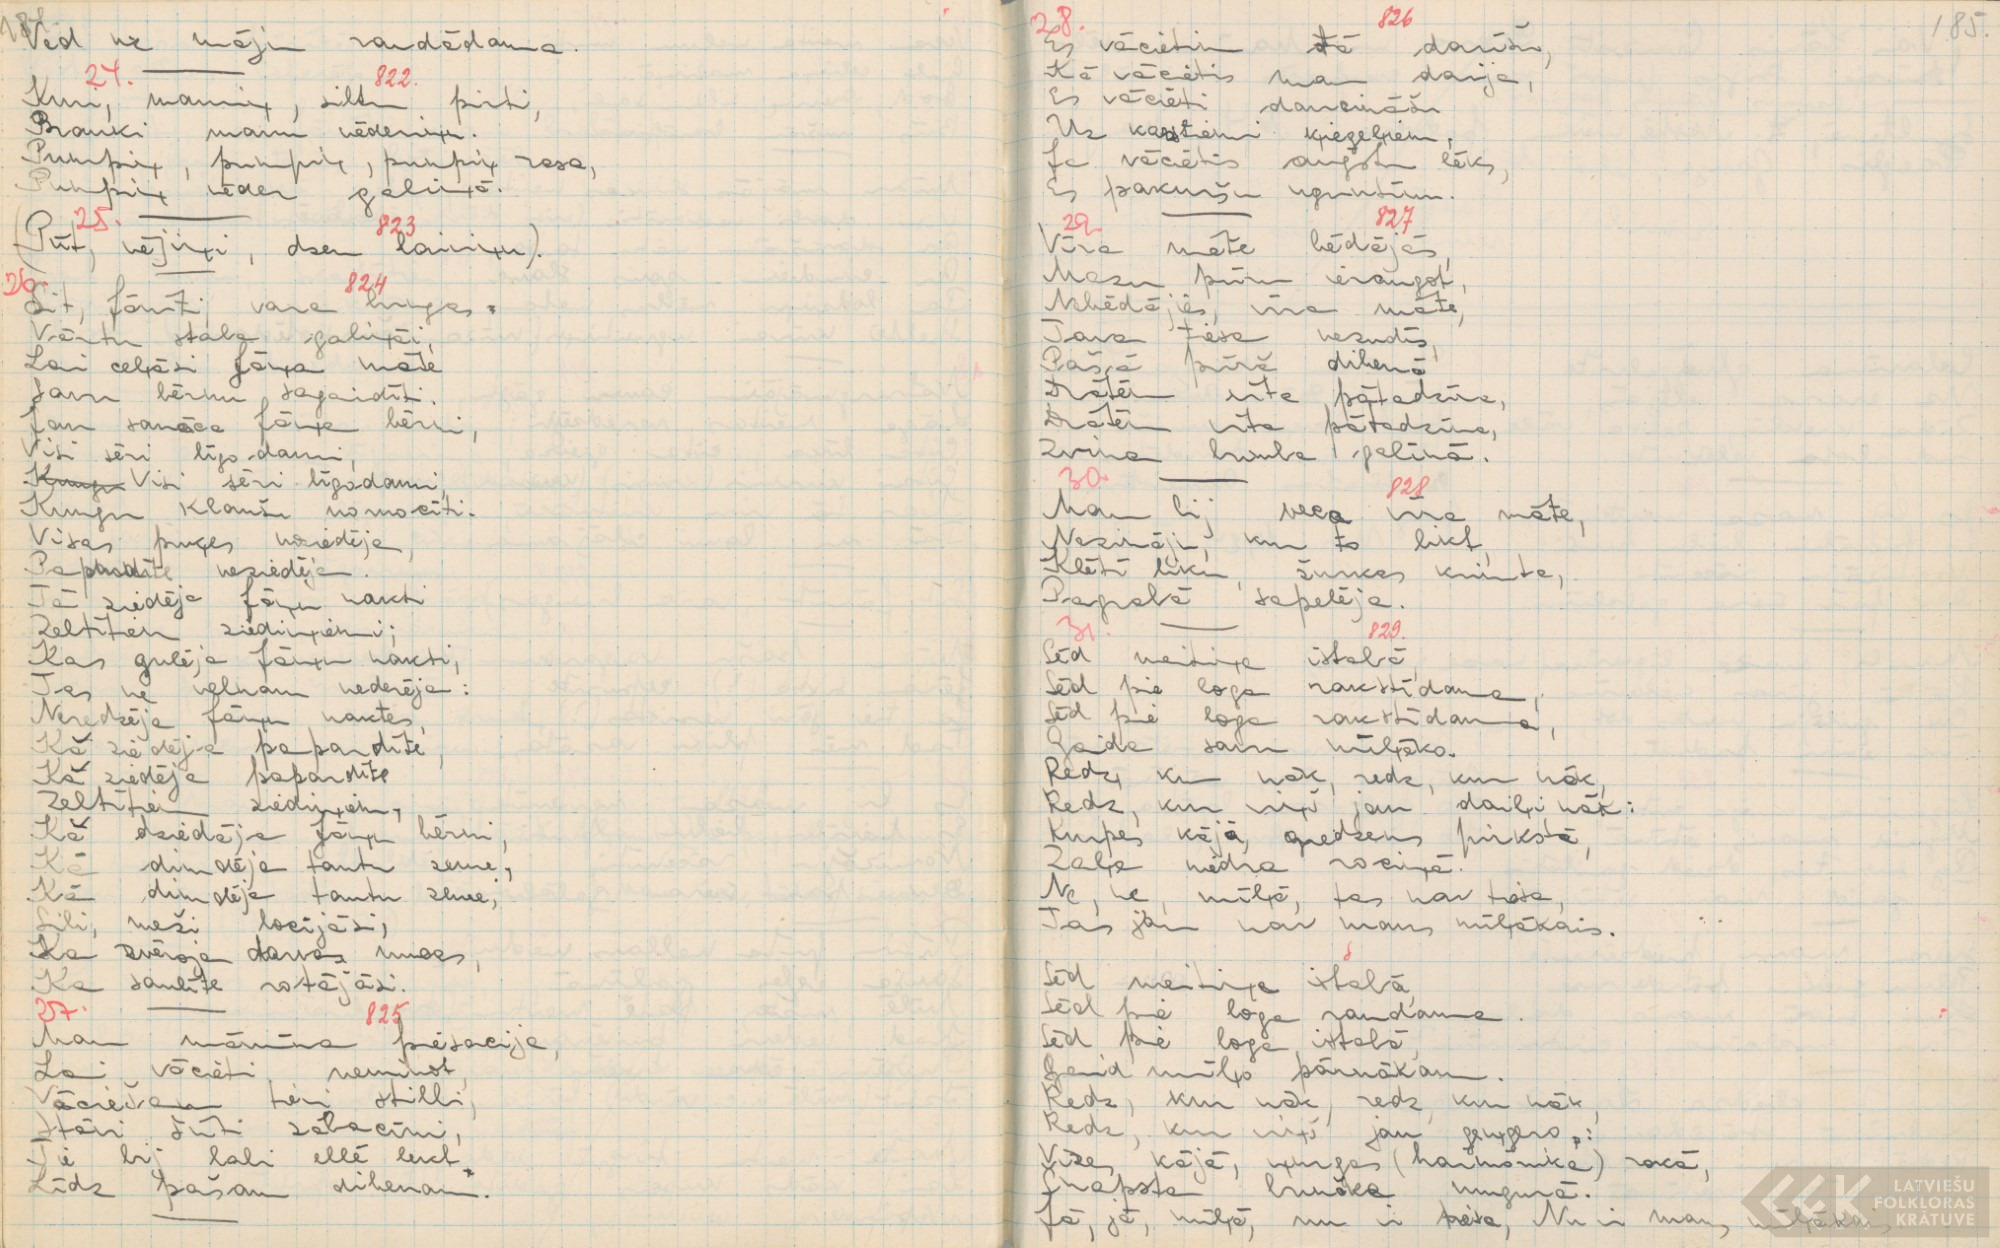 184.
Ved uz māju raudādama.
24. 822.
Kuri, māmiņ, siltu pirti,
Brauki manu vēderiņu.
Pumpiņ, pumpiņ, pumpiņ rasa,
Pumpiņ vēder galiņā.
25. 823
(Pūt, vējiņi, dzen laiviņu).
26. 824
Sit, Jānīti, vara bungas
Vārtu staba galiņāi,
Lai ceļasi Jāņa māte
Savu bērnu sagaidīti.
Jau sanāca Jāņa bērni,
Visi sēri līgodami,
Visi sēri līgodami,
Kungu klaušu nomocīti.
Visas puķes noziedēja,
Papardīte neziedēja.
Tā ziedēja Jāņu nakti
Zeltītiem ziediņiemi;
Kas gulēja Jāņu nakti,
Tas ne velnam nederēja:
Neredzēja Jāņu naktes,
Kā ziedēja papardīte,
Kā ziedēja papardīte
Zeltītiem ziediņiem,
Kā dziedāja Jāņu bērni,
Kā dimdēja tautu zeme,
Kā dimdēja tautu zeme,
Sili, meži locījāsi,
Ka zvēroja darvas mucas,
Ka saulīte rotājāsi.
27. 825
Man māmiņa piesacīja,
Lai vācieti neminot,
Vāciešam tievi stilbi,
Stāvi šūti zābacīni,
Tie bij labi ellē lekt
Līdz pašam dibenam.
185.
28. 826
Es vācietim tā darīšu,
Kā vācietis man darīja,
Es vācieti dancināšu
Uz karstiemi ķieģeļiem,
Ja vācietis augstu lēks,
Es pakuršu uguntiņu.
29. 827
Vīra māte bēdājās,
Mazu pūru ieraugot,
Nebēdājies, vīra māte,
Tava tiesa nezudīs,
Pašā pūra dibenā
Drātēm vīta pātadziņa,
Drātēm vīta pātadziņa,
Zvina bumba galiņā.
30. 828
Man bij veca vīra māte,
Nezināju, kur to likt,
Klētī liku, žurkas krimta,
Pagrabā sapelēja.
31. 829.
Sēd meitiņa istabā,
Sēd pie loga rakstīdama,
Sēd pie loga rakstīdama,
Gaida savu mīļāko.
Redz, kur nāk, redz, kur nāk,
Redz, kur viņš jau daiļi nāk:
Kurpes kājā, gredzens pirkstā,
Zaļa niedra rociņā.
Ne, ne, mīļā, tas nav tiesa,
Tas jau nav mans mīļākais.
Sēd meitiņa istabā,
Sēd pie loga raudama.
Sēd pie loga istabā,
Gaid mīļo pārnākam.
Redz, kur nāk, redz, kur nāk,
Redz, kur viņš jau
Vīzes kājā, (harmonika) rokā,
Šņapsta mugurā.
Jā, jā, mīļā, nu ir tiesa, Nu ir mans mīļākais
LATVIEŠU
FOLKLORAS
KRĀTUVE